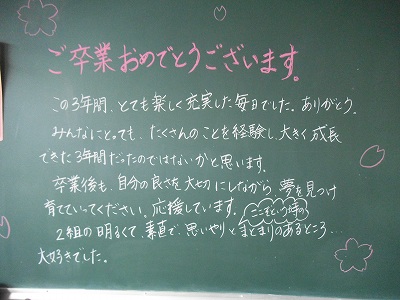 ご卒業おめでとうございます。
この3年間、とても楽しく充実した毎日でした。ありがとう。
みんなにとっても、たくさんのことを経験し、大きく成長
できた3年間だったのではないかと思います。
卒業後も、自分の良さを大切にしながら、夢を見つけ
育てていってください。応援しています。
ここぞという時の
2組の明るくて、素直で、思いやりとまとまりのあるところ…
大好きでした。